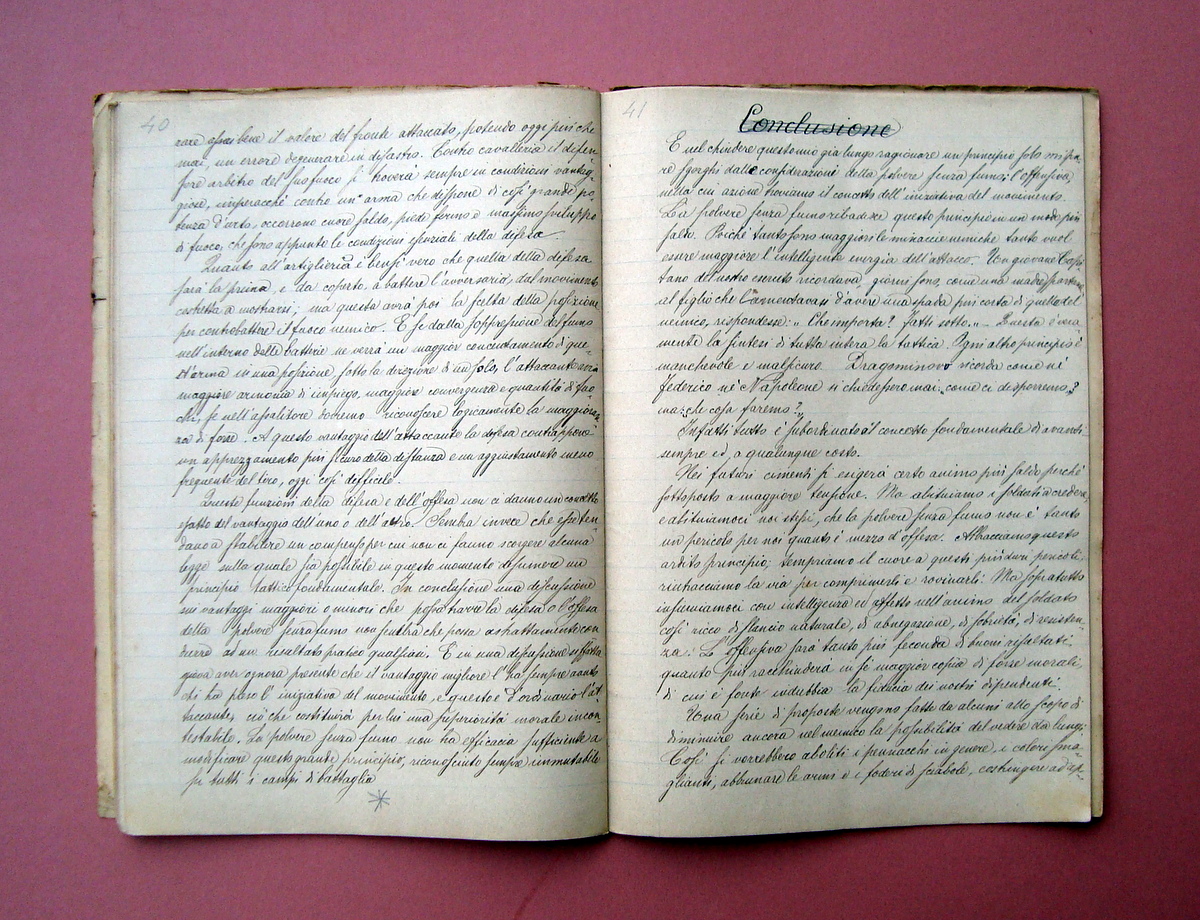 40
rare assai bene il valore del fronte attaccato, potendo oggi più che
mai, un errore degenerare in disastro. Contro cavalleria il difen-
sore arbitro del suo fuoco si troverà sempre in condizioni vantag-
giose, imperocché contro un'arma che dispone di così grande po-
tenza d'urto, occorrono cuore saldo, piede fermo e massimo sviluppo
di fuoco, che sono appunto le condizioni essenziali della difesa.
Quanto all'artiglieria è bensì vero che quella della difesa
sarà la prima, e da coperto, a battere l'avversaria, dal movimento
costretta a mostrarsi; ma questa avrà poi la scelta della posizione
per controbattere il fuoco nemico. E se dalla soppressione del fumo
nell'interno delle batterie ne verrà un maggior concentamento di que-
st'arma in una posizione sotto la direzione di un solo, l'attaccante avrà
maggiore armonia di impiego, maggiore convergenza e quantità di fuo-
chi, se nell'assalitore dovremo riconoscere logicamente la maggioran-
za di forze. A questo vantaggio dell'attaccante la difesa contrappone
un apprezzamento più sicuro della distanza e un aggiustamento meno
frequente del tiro, oggi così difficile.
Queste funzioni della difesa e dell'offesa non ci danno un concetto
esatto del vantaggio dell'uno o dell'altro. Sembra invece che esse ten-
dano a stabilire un compenso per cui non ci fanno scorgere alcuna
legge sulla quale sia possibile in questo momento desumere un
principio tattico fondamentale. In conclusione una discussione
sui vantaggi maggiori o minori che possa trarre la difesa o l'offesa
della polvere senza fumo non sembra che possa astrattamente con
durre ad un resultato pratico qualsiasi. E in una discussione siffatta
giova aver ognora presente che il vantaggio migliore l'ha sempre avuto
chi ha preso l'iniziativa del movimento, e questo è d'ordinario l'at-
taccante, ciò che costituirà per lui una superiorità morale incon-
testabile. La polvere senza fumo non ha efficacia sufficiente a
modificare questo grande principio, riconosciuto sempre immutabile
su tutti i campi di battaglia
*
41
Conclusione
E nel chiudere questo mio già lungo ragionare un principio solo mi pa-
re sgorghi dalle considerazioni della polvere senza fumo: l'offensiva,
nella cui azione troviamo il concetto dell'iniziativa del movimento.
La polvere senza fumo ribadisce questo principio in un modo più
saldo. Poiché tanto sono maggiori le minaccie nemiche tanto vuol
essere maggiore l'intelligente energia dell'attacco. Un giovane Capi-
tano del nostro esercito ricordava, giorni sono, come una madre spartana
al figlio che lamentavasi d'avere una spada più corta di quella del
nemico, rispondesse: „ Che importa? Fatti sotto. „ — Questa è vera-
mente la sintesi di tutta intera la tattica. Ogni altro principio è
manchevole e malsicuro. Dragomirow ricorda come nè
Federico nè Napoleone si chiedessero mai: come ci disporremo?
ma: che cosa faremo?
Infatti tutto è subordinato al concetto fondamentale di avanti
sempre ed, a qualunque costo.
Nei futuri cimenti si esigerà certo animo più saldo perchè
sottoposto a maggiore tensione. Ma abituiamo i soldati a credere,
e abituiamoci noi stessi, che la polvere senza fumo non è tanto
un pericolo per noi quanto è mezzo d'offesa. Abbracciamo questo
ardito principio; tempriamo il cuore a questi più duri pericoli,
rintracciamo la via per comprimerli e rovinarli! Ma sopratutto
infurniamoci con intelligenza ed affetto nell'animo del soldato
così ricco di slancio naturale, di abnegazione, di sobrietà, di resisten-
za. L'offensiva sarà tanto più feconda di buoni risultati
quanto più racchiuderà in sè maggior copia di forze morali,
di cui è fonte indubbia la fiducia dei nostri dipendenti.
Una serie di proposte vengono fatte da alcuni allo scopo di
diminuire ancora nel nemico la possibilità del vedere da lungi.
Così si vorrebbero aboliti i pennacchi in genere, i colori sma-
glianti, abbrunare le armi e i foderi di sciabole, costringere ad ap-